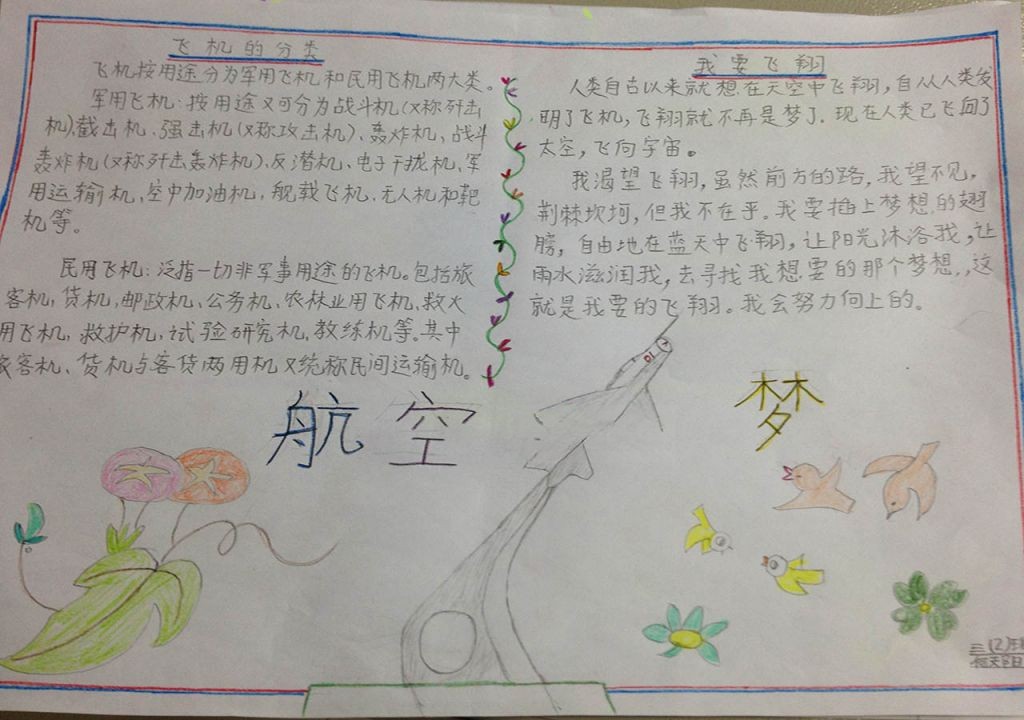 飞机的分类
飞机按用途分为军用飞机和民用飞机两大类。
军用飞机：按用途又可分为战斗机(又称歼击
机)截击机、强击机(又称攻击机)、轰炸机、战斗
轰炸机(又称歼击轰炸机)、反潜机、电子干扰机、军
用运输机、空中加油机，舰载飞机、无人机和靶
机等。
民用飞机：泛指一切非军事用途的飞机。包括旅
客机，货机，邮政机、公务机、农林业用飞机、救火
用飞机，救护机，试验研究机，教练机等。其中
旅客机、货机与客货两用机又统称民间运输机。
我要飞翔
人类自古以来就想在天空中飞翔，自从人类发
明了飞机，飞翔就不再是梦了．现在人类已飞向了
太空，飞向宇宙。
我渴望飞翔，虽然前方的路，我望不见，
荆棘坎坷，但我不在乎。我要插上梦想的翅
膀，自由地在蓝天中飞翔，让阳光沐浴我，让
雨水滋润我，去寻找我想要的那个梦想，这
就是我要的飞翔。我会努力向上的。
航空
梦
三(2)